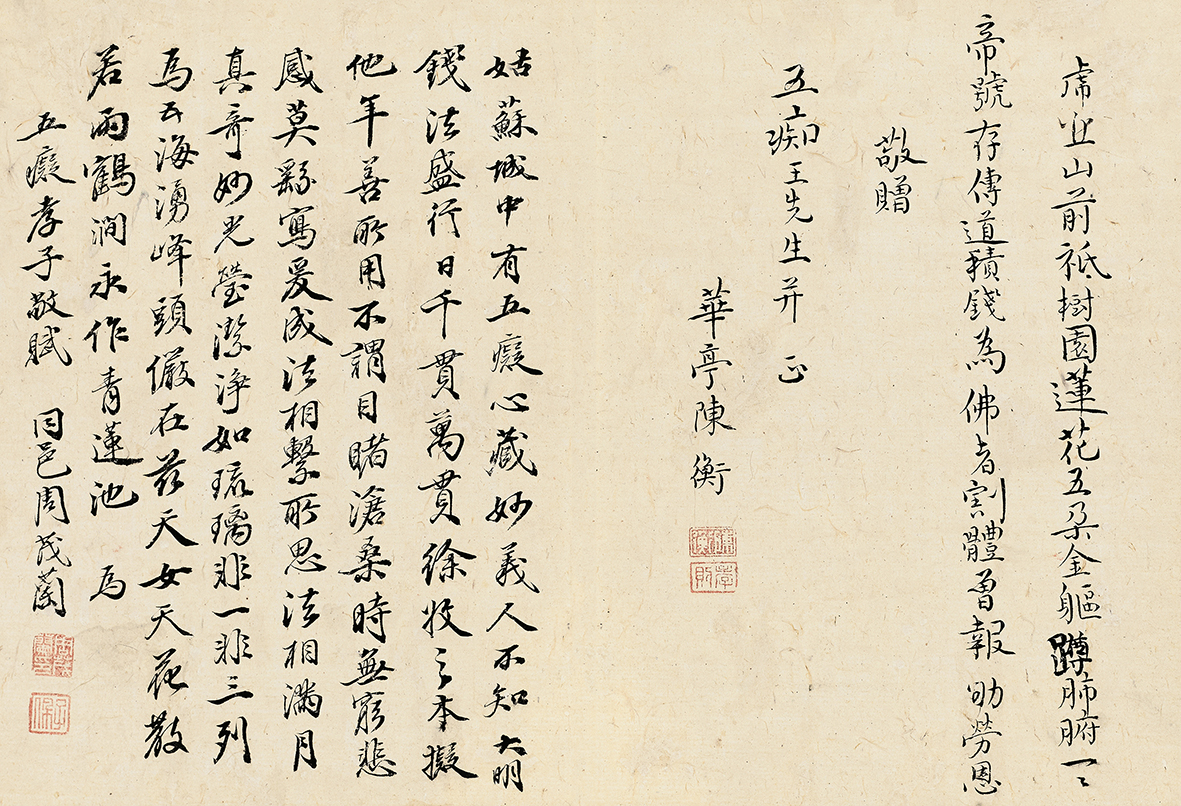 虎丘山前祇樹園蓮花五朵金軀蹲肺腑一々
帝號存傳道積錢為佛者割體曾報劬勞恩
敬贈
五痴王先生并正
華亭陳衡
姑蘇城中有五癡心藏妙義人不知大明
錢法盛行日千貫萬貫徐收之本擬
他年善所用不謂目睹滄桑時無窮悲
感莫繇寫爰成法相繫所思法相滿月
真奇妙光瑩潔淨如琉璃非一非三列
為五海湧峰頭儼在茲天女天花散
若雨鶴澗永作青蓮池 為
五癡孝子敬賦 同邑周茂蘭